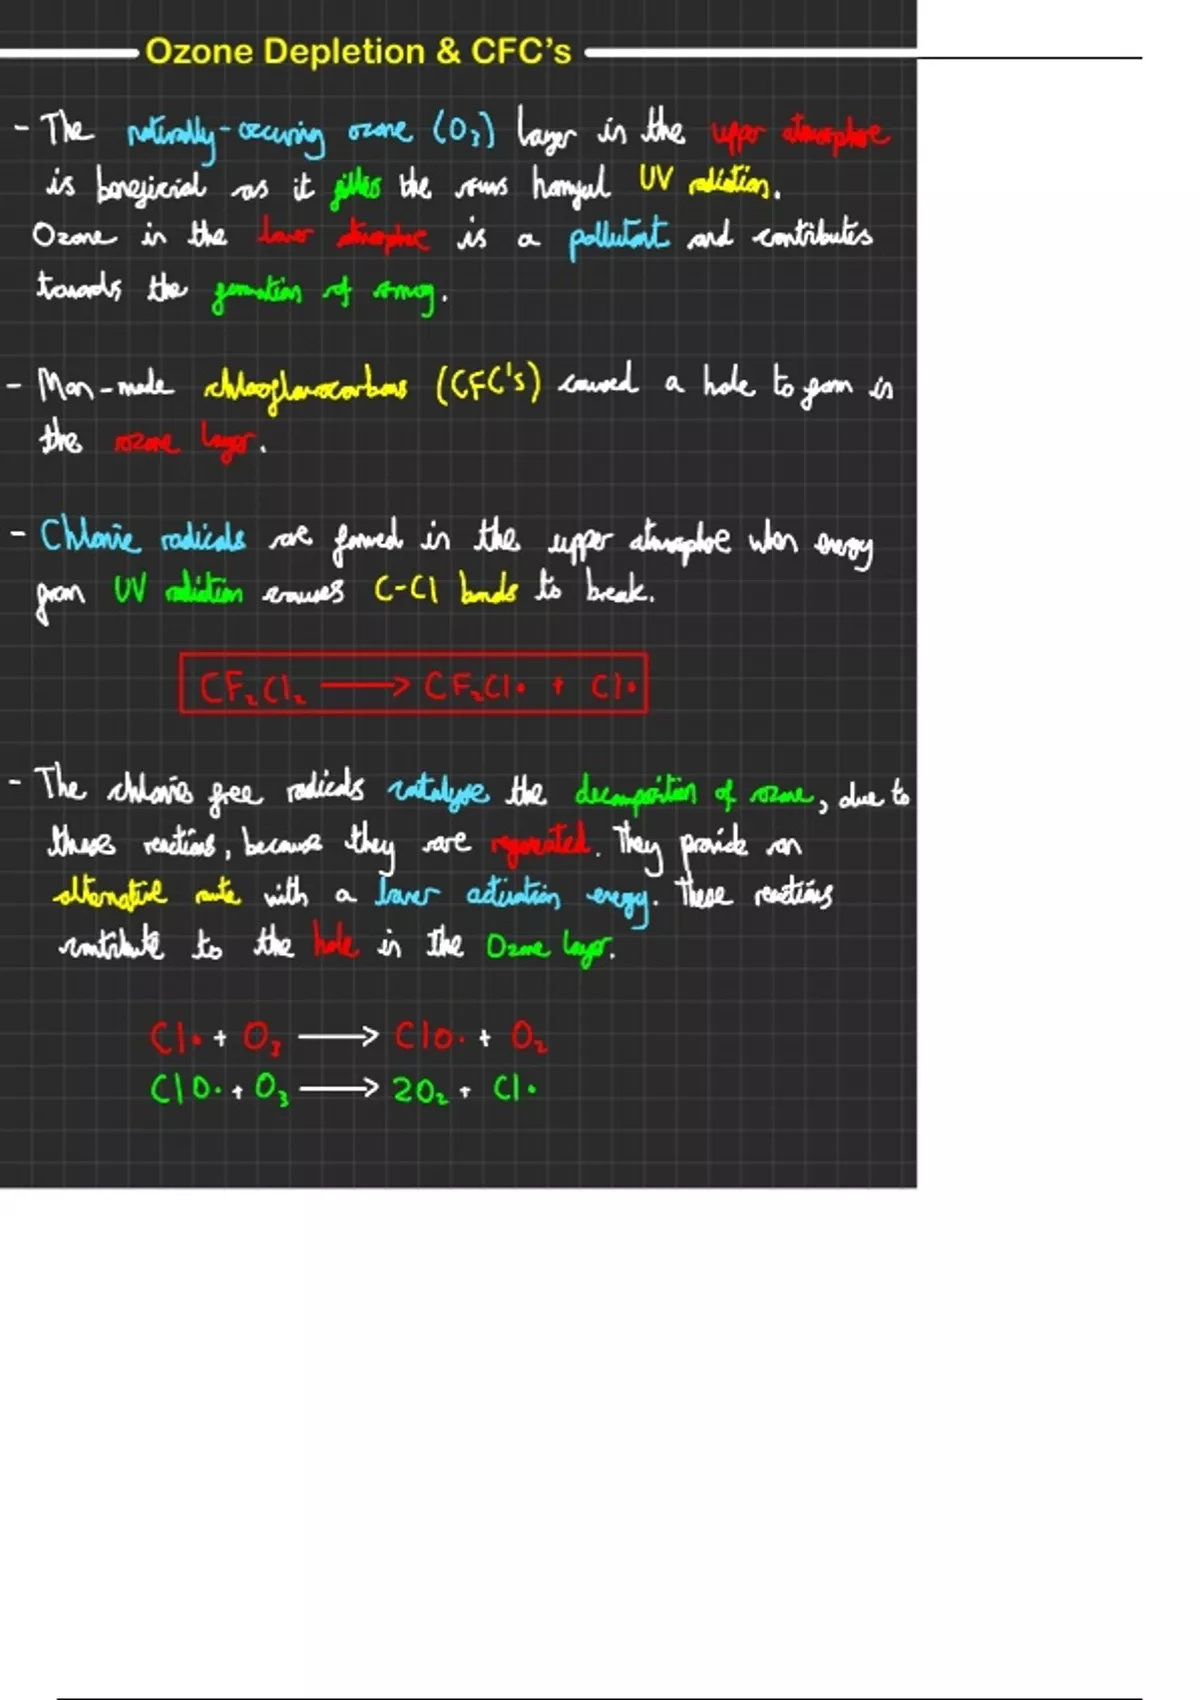 Ozone Depletion & CFC's
- The naturally-occuring ozone (O₃) layer in the upper atmosphere
is beneficial as it filters the suns harmful UV radiation.
Ozone in the lower atmosphere is a pollutant and contributes
towards the formation of smog.
- Man-made chloroflourocarbons (CFC's) caused a hole to form in
the ozone layer.
- Chlorine radicals are formed in the upper atmosphere when energy
from UV radiation causes C-Cl bonds to break.
CF₂Cl₂ ⟶ CF₂Cl• + Cl•
- The chlorine free radicals catalyse the decomposition of ozone, due to
these reactions, because they are regenerated. They provide an
alternative route with a lower activation energy. These reactions
contribute to the hole in the Ozone layer.
Cl• + O₃ ⟶ ClO• + O₂
ClO• + O₃ ⟶ 2O₂ + Cl•